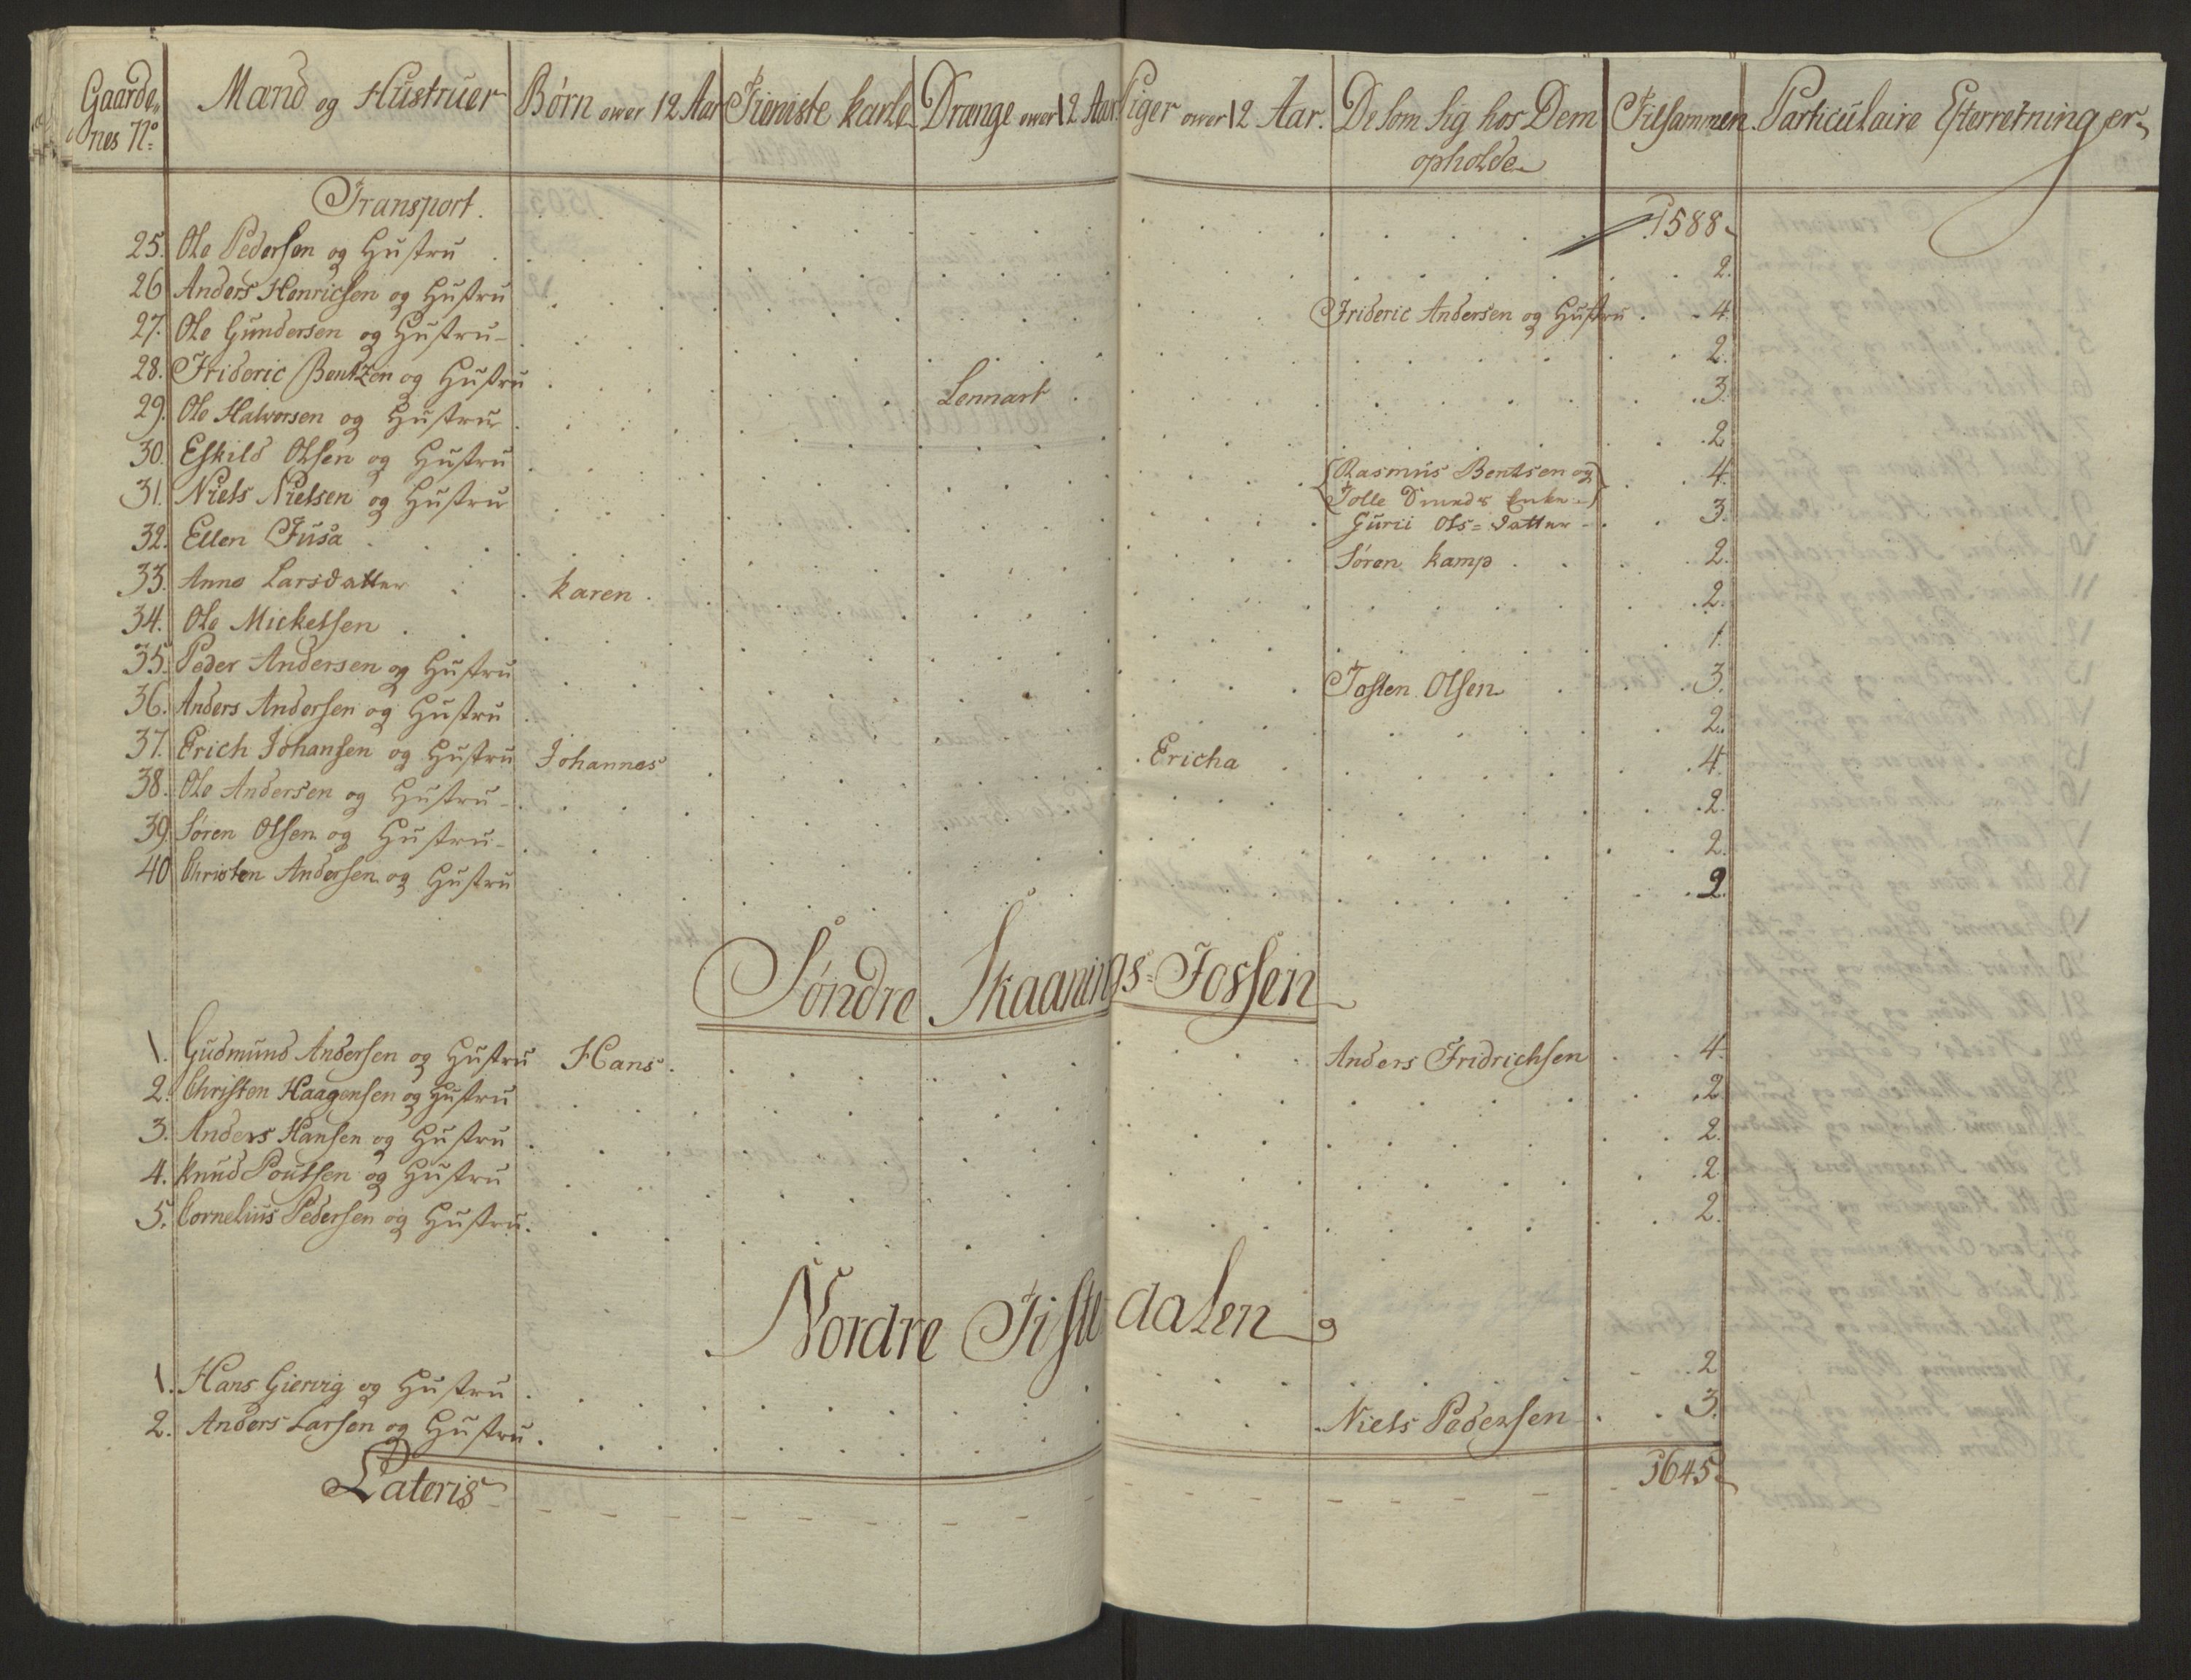 Gaarde- nes No: Mænd og Hustruer Børn over 12 Aar Tieniste karle Drænge over 12 Aar Piger over 12 Aar. De som sig hos Dem opholde Tilsammen. Particulaire Efterretninger
Transport. 1588.
25. Ole Pedersen og Hustru 2.
26 Anders Henricsen og Hustru Frideric Andersen og Hustru 4.
27. Ole Gundersen og Hustru 2.
28. Frideric Bentzen og Hustru Lennart 3.
29. Ole Halvorsen og Hustru 2
30. Eskild Olsen og Hustru (Rasmus Bentsen og Enke) 4.
31. Niels Nielsen og Hustru Gurii Ols=datter 3.
32. Ellen Fusa Søren kamp 2.
33. Anne Larsdatter karen 2.
34. Ole Mickelsen 1.
35. Peder Andersen og Hustru Tosten Olsen 3.
36. Anders Andersen og Hustru 2.
37. Erich Johansen og Hustru Johannes Ericha 4.
38. Ole Andersen og Hustru 2.
39. Søren Olsen og Hustru 2.
40 Christen Andersen og Hustru 2.
Søndre Skaanings=Fossen
1. Gudmund Andersen og Hustru Hans Anders Fridrichsen 4.
2. Christen Haagensen og Hustru 2
3. Anders Hansen og Hustru 2.
4. Knud Poulsen og Hustru 2
5. Cornelius Pedersen og Hustru 2.
Nordre Tistedalen
1. Hans Giervig og Hustru 2
2. Anders Larsen og Hustru Niels Pedersen 3.
Lateris 1645.